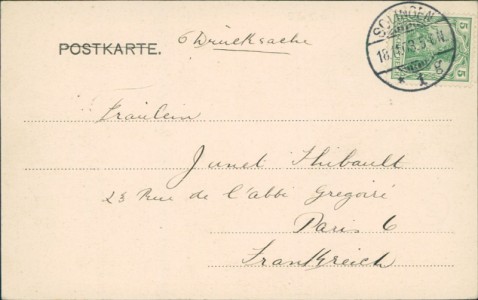 POSTKARTE. Drucksache
SOLINGEN
5 5
* 1 g
Fräulein
Junet Thibault
23 Rue de l'abbé Gregoiré
Paris 6
Frankreich